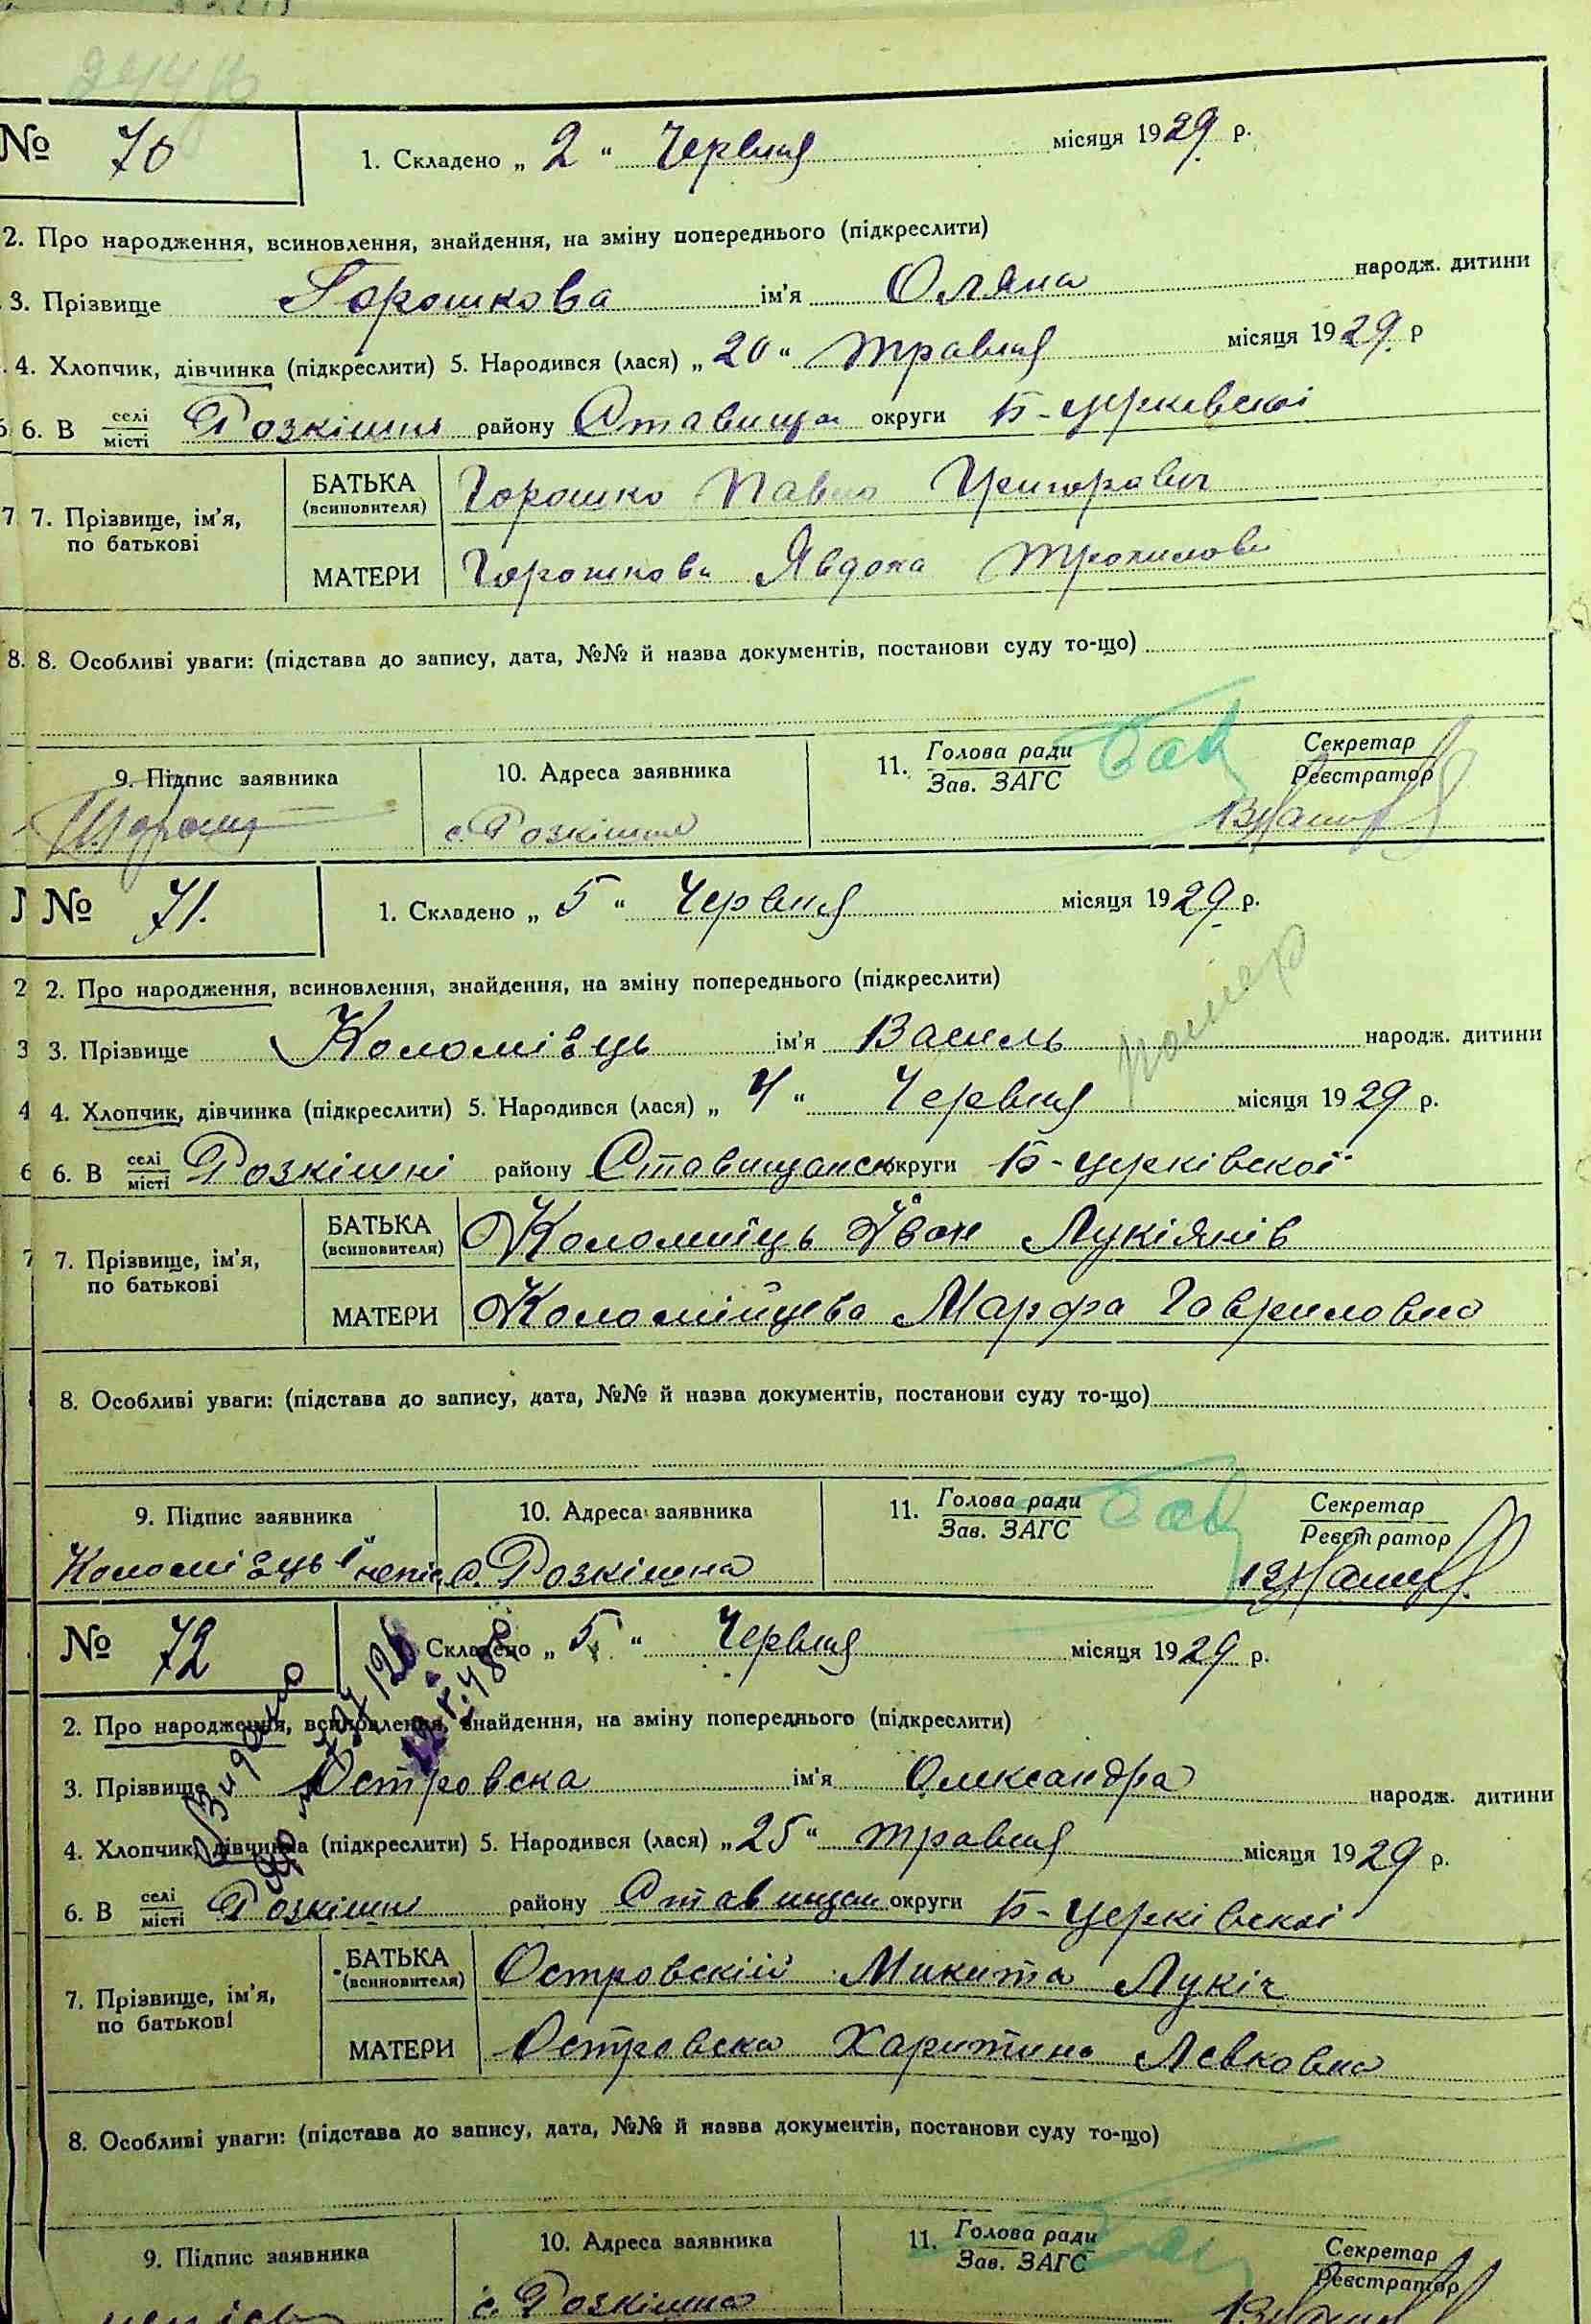 № 70
1. Складено „ 2 “ Червня місяця 1929 р.
2. Про народження, всиновлення, знайдення, на зміну попереднього (підкреслити)
3. Прізвище Горошкова ім’я Оляна народж. дитини
4. Хлопчик, дівчинка (підкреслити) 5. Народився (лася) „ 20 “ травня місяця 1929 р
6. В селі місті Розкішні району Ставища округи Б-церкевської
7. Прізвище, ім’я, по батькові
БАТЬКА (всиновителя) Горошко Павло Григорович
МАТЕРИ Горошкова Явдоха
8. Особливі уваги: (підстава до запису, дата, №№ й назва документів, постанови суду то-що)
9. Підпис заявника 10. Адреса заявника 11. Голова ради Зав. ЗАГС Секретар Реєстратор
с. Розкішна
№ 71.
1. Складено „ 5 “ Червня місяця 1929 р.
2. Про народження, всиновлення, знайдення, на зміну попереднього (підкреслити)
3. Прізвище Коломієць ім’я Василь народж. дитини
4. Хлопчик, дівчинка (підкреслити) 5. Народився (лася) „ 4 “ Червня місяця 1929 р.
6. В селі місті Розкішні району Ставищанск округи Б-церківскої
7. Прізвище, ім’я, по батькові
БАТЬКА (всиновителя) Коломиїць Іван Лукіянів
МАТЕРИ Коломійцева Марфа Гавриловна
8. Особливі уваги: (підстава до запису, дата, №№ й назва документів, постанови суду то-що)
9. Підпис заявника 10. Адреса заявника 11. Голова ради Зав. ЗАГС Секретар Реєстратор
Коломієць с. Розкішна
№ 72
Складено „ 5 “ Червня місяця 1929 р.
2. Про народження, всиновлення, знайдення, на зміну попереднього (підкреслити)
3. Прізвище Островска ім’я Олександра народж. дитини
4. Хлопчик, дівчинка (підкреслити) 5. Народився (лася) „ 25 “ травня місяця 1929 р.
6. В селі місті Розкішні району Ставищан округи Б-Церківскої
7. Прізвище, ім’я, по батькові
БАТЬКА (всиновителя) Островскій Микита Лукіч
МАТЕРИ Островска Харитина Левковна
8. Особливі уваги: (підстава до запису, дата, №№ й назва документів, постанови суду то-що)
9. Підпис заявника 10. Адреса заявника 11. Голова ради Зав. ЗАГС Секретар Реєстратор
с. Розкішна